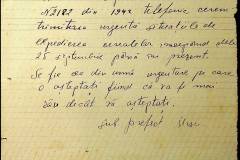 № 2182 din 1942 telefonic cerem
trimiterea urgentă situațiile de
expedierea cerealelor începând dela
25 septembrie până în prezent.
Se fie cea din urmă urgentare pe care
o așteptați fiind că va fi mai
rău decât vă așteptați.
Sub prefect